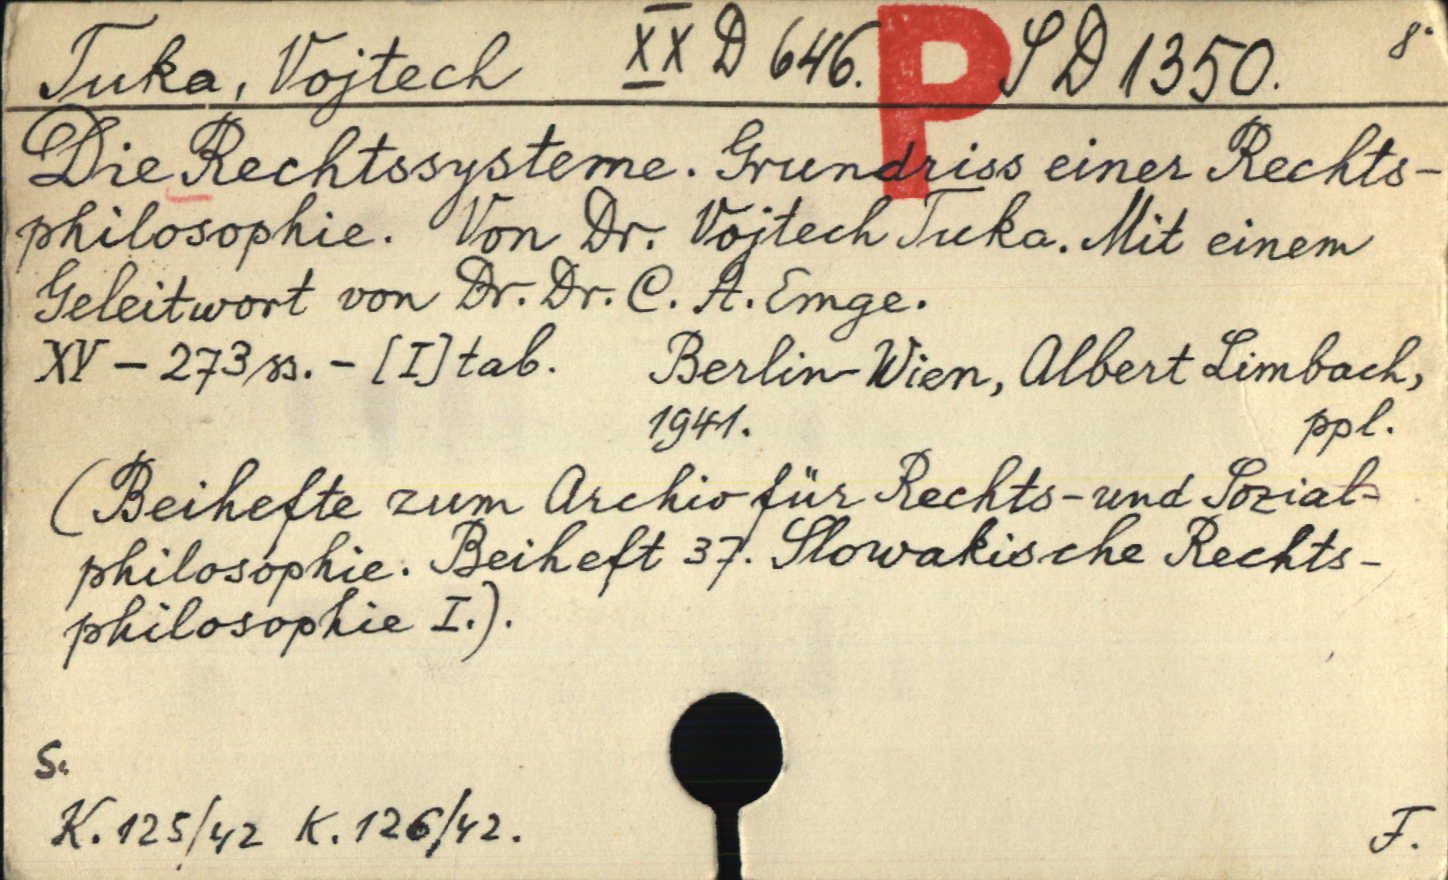 Tuka, Vojtech XX D 646. P SD 1350. 8°
Die Rechtssysteme. Grundriss einer Rechts-
philosophie. Von Dr. Vojtech Tuka. Mit einem
Geleitwort von Dr. Dr. C. A. Emge.
XV – 273 ss. – [I] tab. Berlin-Wien, Albert Limbach,
1941. ppl.
(Beihefte zum Archiv für Rechts- und Sozial-
philosophie. Beiheft 37. Slowakische Rechts-
philosophie I.).
S.
K. 125/42 K. 126/42. F.